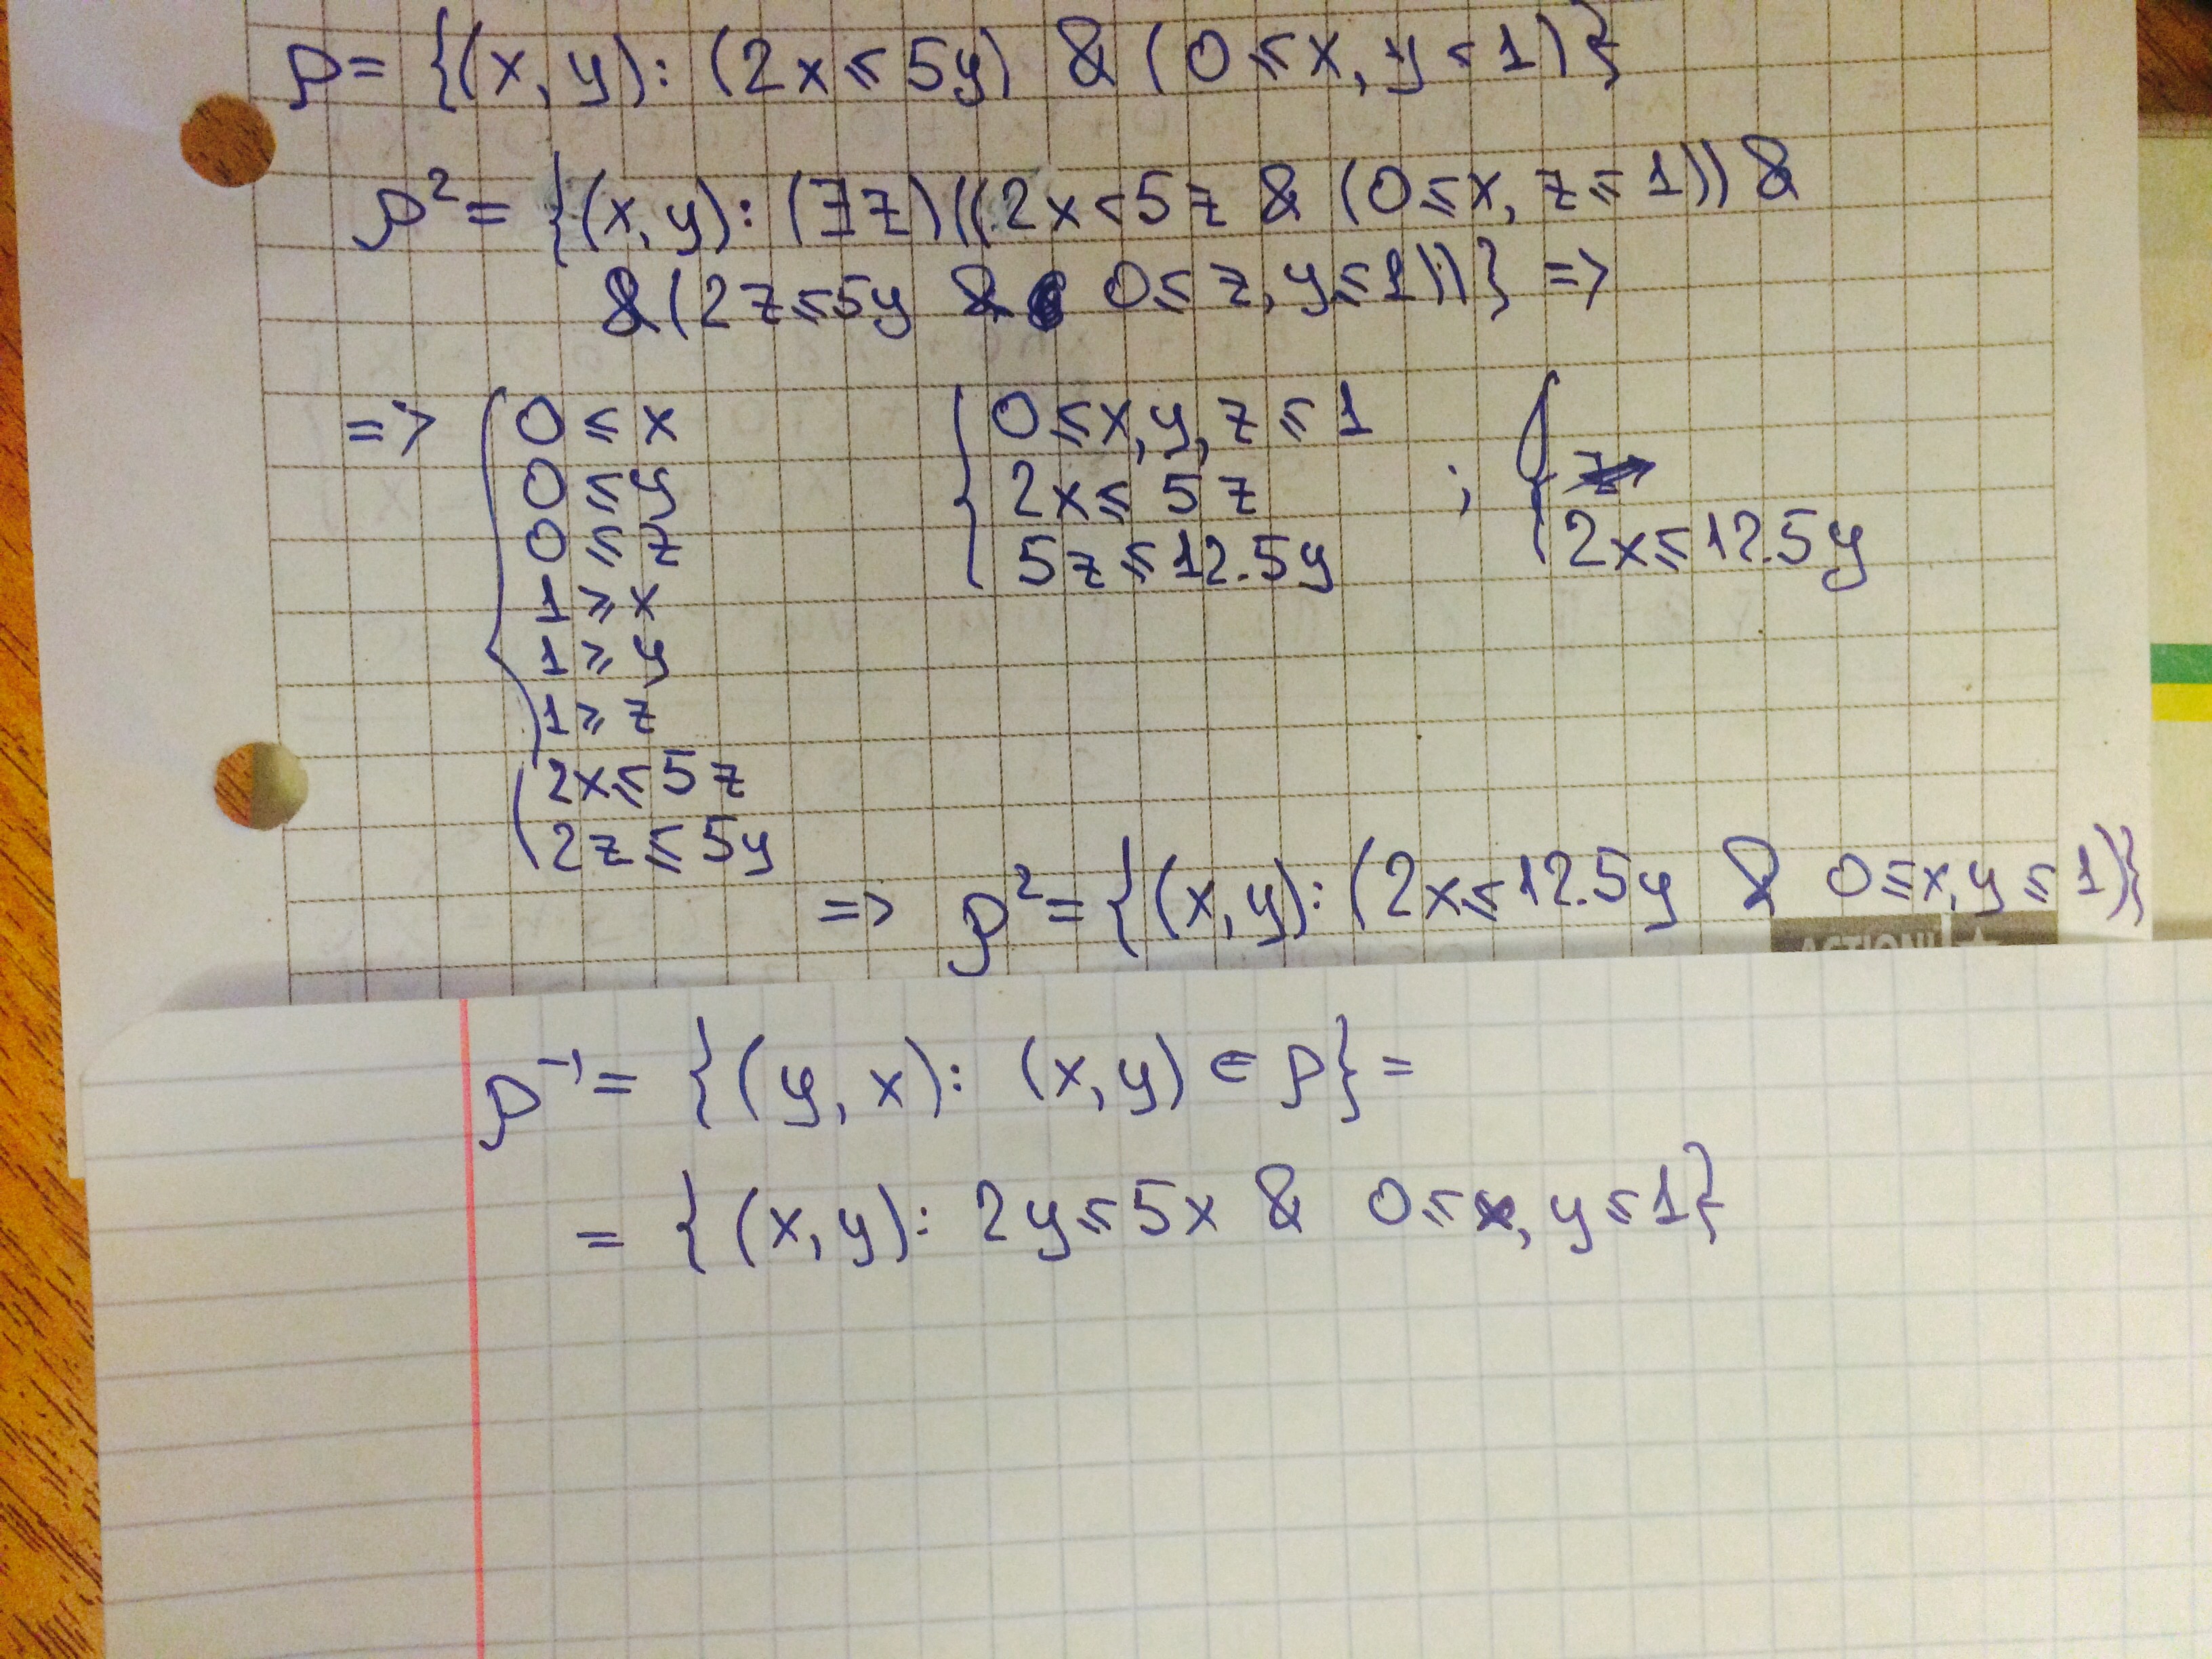 ρ = {(x, y): (2x ≤ 5y) & (0 ≤ x, y ≤ 1)}
ρ² = {(x, y): (∃z)((2x ≤ 5z & (0 ≤ x, z ≤ 1)) &
& (2z ≤ 5y & 0 ≤ z, y ≤ 1))} =>
=> { 0 ≤ x
0 ≤ y
0 ≤ z
1 ≥ x
1 ≥ y
1 ≥ z
2x ≤ 5z
2z ≤ 5y
{ 0 ≤ x, y, z ≤ 1
2x ≤ 5z
5z ≤ 12.5y
; {
2x ≤ 12.5y
=> ρ² = {(x, y): (2x ≤ 12.5y & 0 ≤ x, y ≤ 1)}
ρ⁻¹ = {(y, x): (x, y) ∈ ρ} =
= {(x, y): 2y ≤ 5x & 0 ≤ x, y ≤ 1}